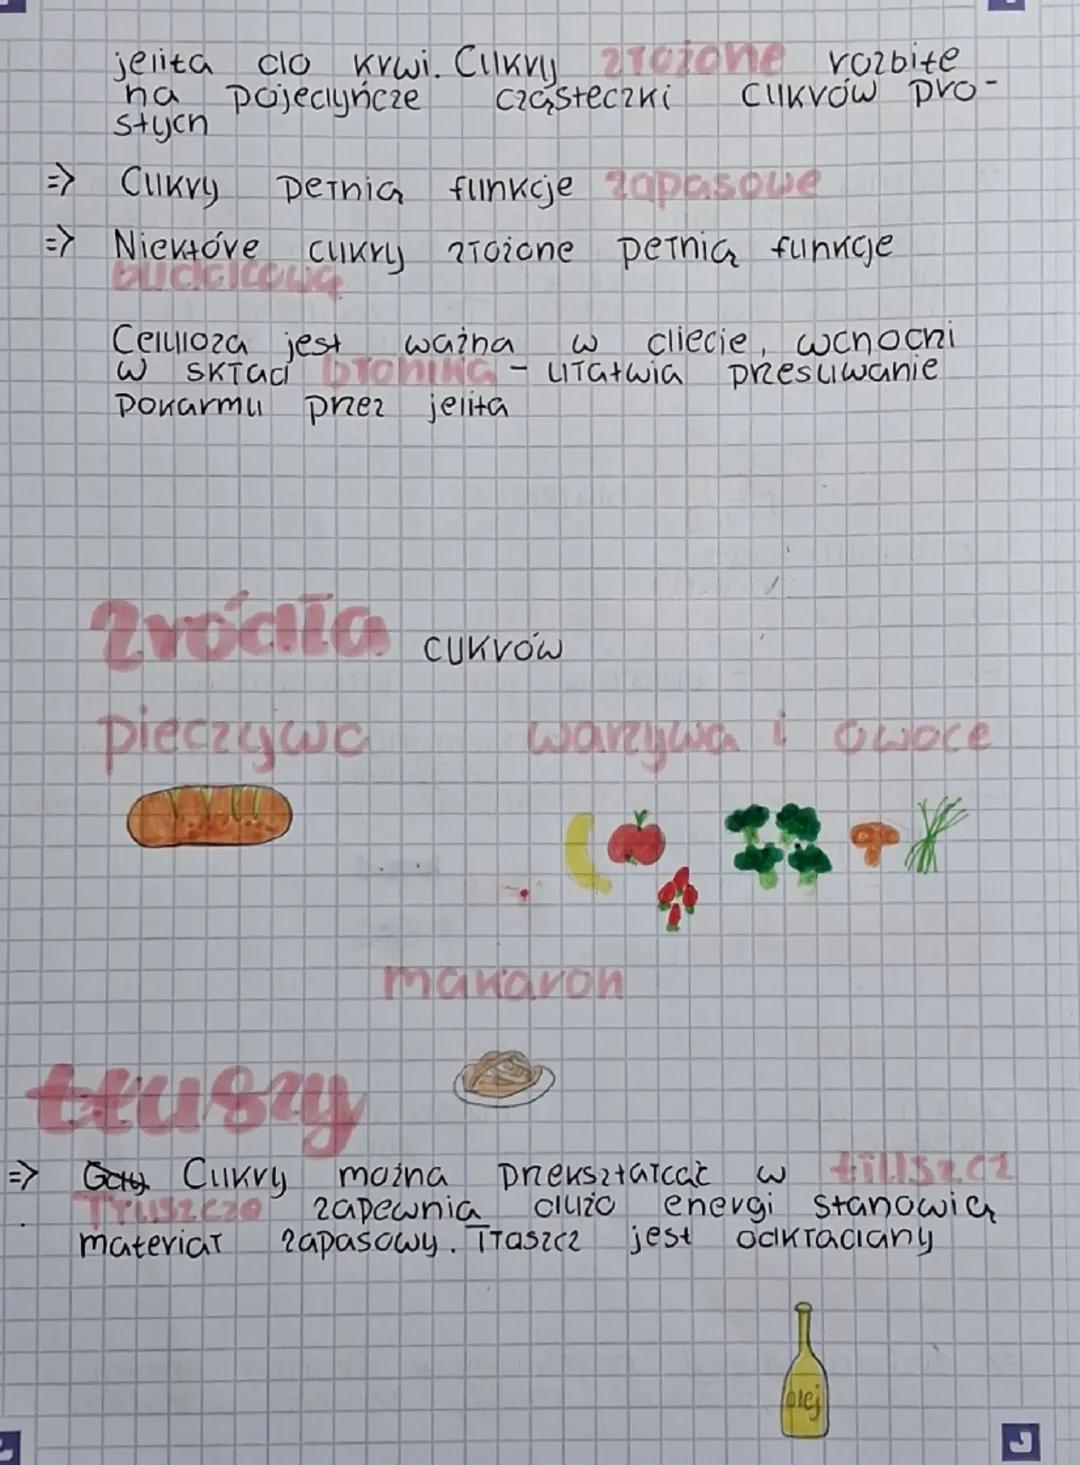 jelita do krwi. Cukry złożone rozbite
na pojedyńcze cząsteczki cukrów pro-
stych
=> Cukry pełnią funkcje zapasowe
=> Niektóre cukry złożone pełnią funkcje
budulcową
Celuloza jest ważna w diecie, wchodni
w skład błonnika - ułatwia przesuwanie
pokarmu przez jelita
źródła cukrów
pieczywo warzywa i owoce
makaron
tłuszy
=> Cukry można przekształcać w tłuszcz
Tłuszcze zapewnią dużo energi stanowią
materiał zapasowy. Tłaszcz jest odkładany
olej